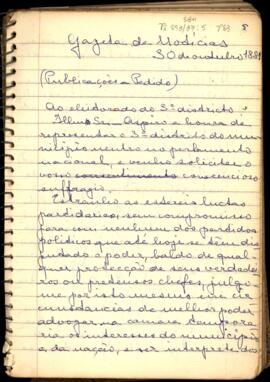 Gazeta de Noticias
30 de outubro 1881
(Publicações a Pedido)
Ao eleitorado do 3º districto
Illmo Sr. Aspiro a honra de
representar o 3º districto do mu-
nicipio neutro no parlamento
nacional, e venho solicitar o
vosso consentimento consciencioso
suffragio.
Extranho as estereis luctas
partidarias, sem compromisso
para com nenhum dos partidos
politicos que até hoje se têm dis-
putado o poder, baldo de qual-
quer protecção de seus verdadei-
ros ou pretensos chefes, julgo-
me por isto mesmo em cir-
cumstancias de melhor poder
advogar na camara tempora-
ria os interesses do municipio
e da nação, e ser interprete dos